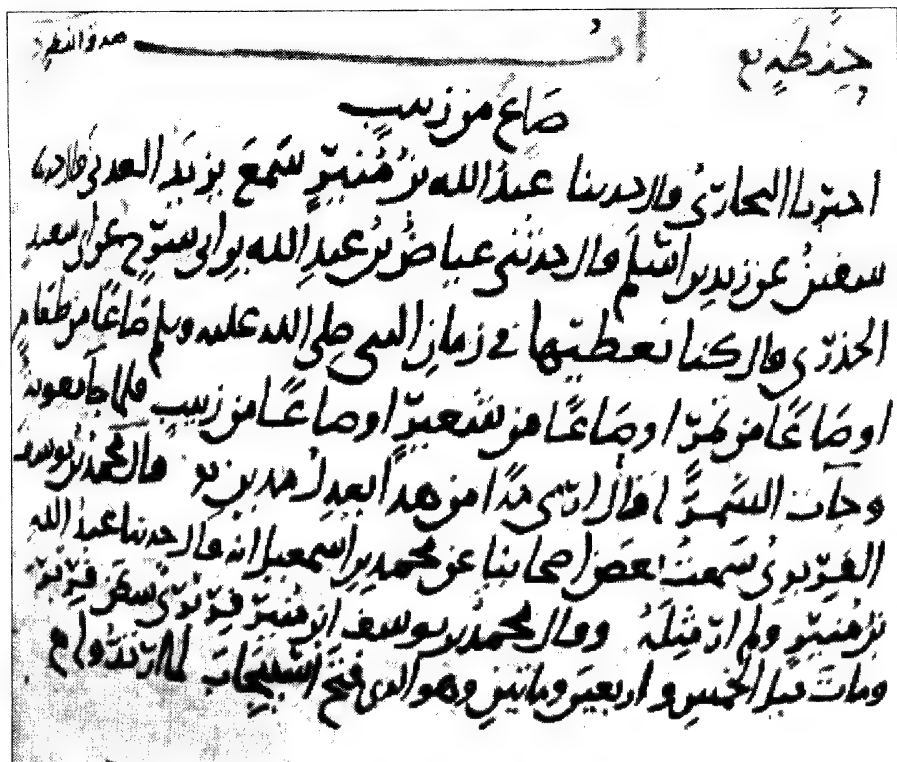 حِنْطَةٍ
صَاعٌ من زبيب
اخبرنا البخاريّ قال حدثنا عبدُ الله بنُ مُنيرٍ سَمعَ يزيدَ العدني قال حدثنا
سفينُ عن زيدِ بن اسْلَم قال حدثني عياضُ بنُ عبدِ الله بن ابي سرْح عن ابي سعيدٍ
الخدرّي قال كنا نعطيها في زمان النبي صلى الله عليه وسلم صَاعًا من طعَامٍ
او صَاعًا من تمرٍ او صَاعًا من شَعيرٍ او صاعًا من زبيبٍ فلما جآ معوية
وجآت السَّمرآ قال ارَى مُدًا من هذا يعدلُ مدين قال محمد بن يوسف
الفِرَبري سَمعت بعضَ اصحابنا عن محمدِ بن اسمعيل انه قال حدثنا عبدُ الله
بنُ مُنيرٍ ولم ارَ مِثلَهُ وقال محمدُ بن يوسف ابن مُنيرٍ فِرَبْرَي سكن فِرَبرَ
ومات قبل الخمسِ واربعينَ ومايتينِ وهو الذي فتح اسْبيجَابَ